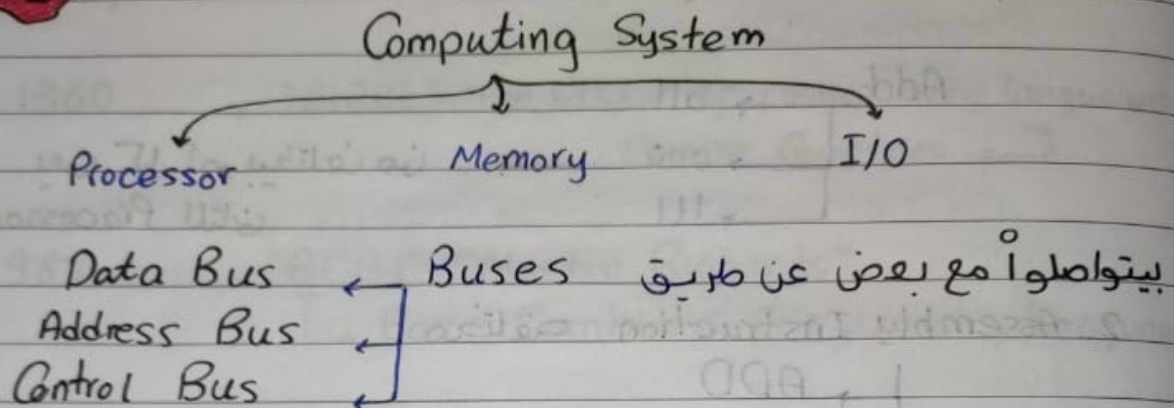 Computing System
Processor Memory I/O
بيتواصلوا مع بعض عن طريق Buses
Data Bus
Address Bus
Control Bus